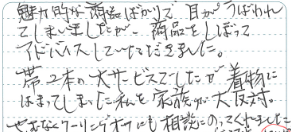 魅力的な商品ばかりで、目がうばわれ
てしまいましたが、商品をしぼって
アドバイスしていただきました。
帯2本の大サービスでしたが着物に
はまってしまった私を家族が大反対。
やむなくクーリングオフにも相談にのってくれました